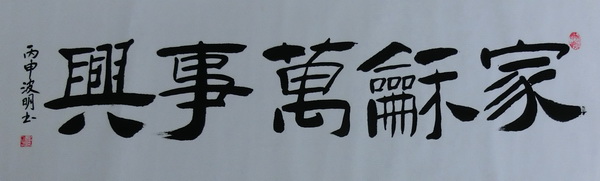 家龢萬事興
丙申波明书